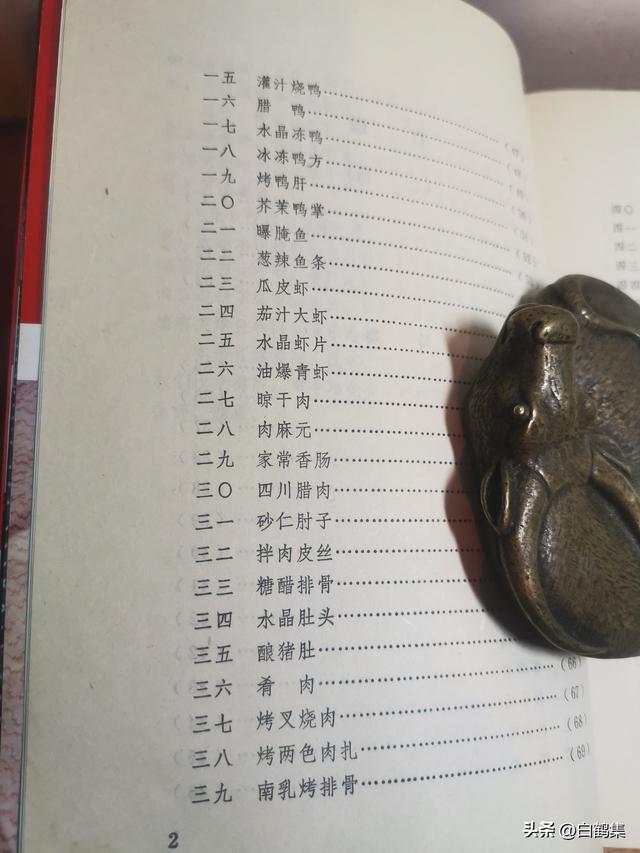 一五 灌汁烧鸭……
一六 腊 鸭……
一七 水晶冻鸭……
一八 冰冻鸭方……
一九 烤鸭肝……
二〇 芥茉鸭掌……
二一 曝腌鱼……
二二 葱辣鱼条……
二三 瓜皮虾……
二四 茄汁大虾……
二五 水晶虾片……
二六 油爆青虾……
二七 晾干肉……
二八 肉麻元……
二九 家常香肠……
三〇 四川腊肉……
三一 砂仁肘子……
三二 拌肉皮丝……
三三 糖醋排骨……
三四 水晶肚头……
三五 酿猪肚……
三六 肴 肉……(66)
三七 烤叉烧肉……(67)
三八 烤两色肉扎……(68)
三九 南乳烤排骨……(69)
2
头条 @白鹤集